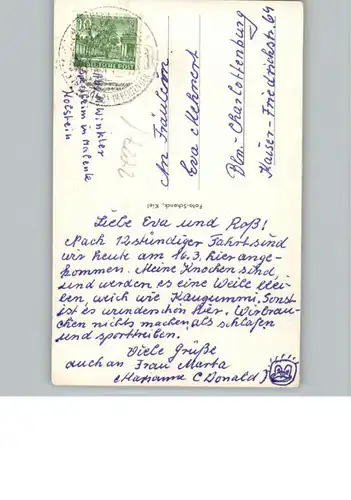 10
DEUTSCHE POST
Winkler
in Malente
Holstein
An Fräulein
Eva Mehnert
Bln.-Charlottenburg
Kaiser-Friedrichstr. 64
Foto-Schenck, Kiel
Liebe Eva und Roß!
Nach 12stündiger Fahrt sind
wir heute am 16.3. hier ange-
kommen. Meine Knochen sind,
und werden es eine Weile blei-
ben, weich wie Kaugummi. Sonst
ist es wunderschön hier. Wir brau-
chen nichts machen, als schlafen
und sporttreiben.
Viele Grüße
auch an Frau Marta
Marianne (Donald)